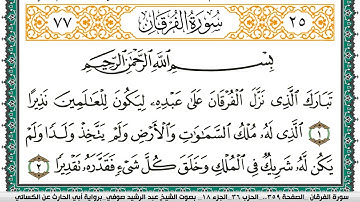 ٢٥ سُورَةُ الْفُرْقَانِ ٧٧
بِسْمِ اللَّهِ الرَّحْمَٰنِ الرَّحِيمِ
تَبَارَكَ الَّذِي نَزَّلَ الْفُرْقَانَ عَلَىٰ عَبْدِهِ لِيَكُونَ لِلْعَالَمِينَ نَذِيرًا
١ الَّذِي لَهُ مُلْكُ السَّمَاوَاتِ وَالْأَرْضِ وَلَمْ يَتَّخِذْ وَلَدًا وَلَمْ
يَكُن لَّهُ شَرِيكٌ فِي الْمُلْكِ وَخَلَقَ كُلَّ شَيْءٍ فَقَدَّرَهُ تَقْدِيرًا ٢
سورة الفرقان . الصفحة ٣٥٩ .. الحزب ٣٦ .. الجزء ١٨ .. بصوت الشيخ عبد الرشيد صوفي .. برواية أبي الحارث عن الكسائي